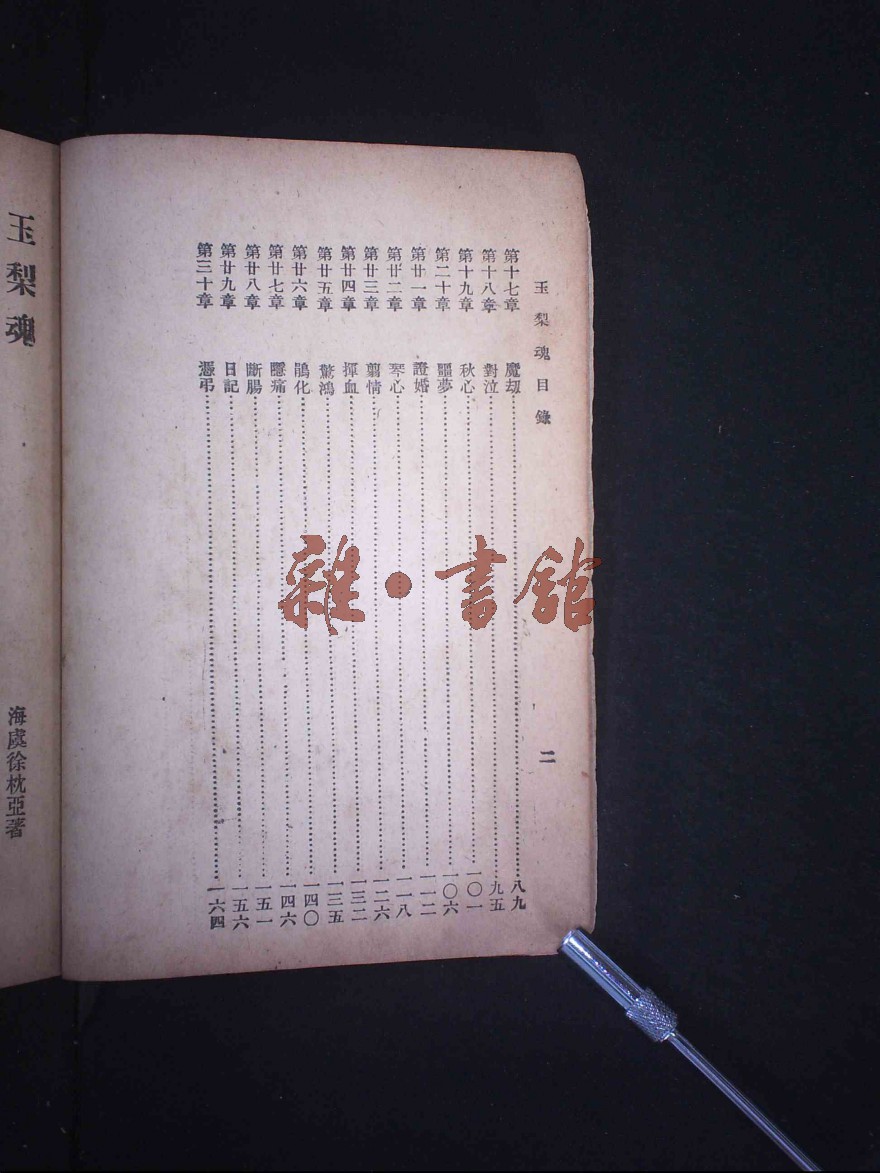 玉梨魂目錄
二
第十七章 魔刼 八九
第十八章 對泣 九五
第十九章 秋心 一〇一
第二十章 噩夢 一〇六
第廿一章 證婚 一一二
第廿二章 琴心 一一八
第廿三章 翦情 一二六
第廿四章 揮血 一三二
第廿五章 驚鴻 一三五
第廿六章 鵑化 一四〇
第廿七章 隱痛 一四六
第廿八章 斷腸 一五一
第廿九章 日記 一五六
第三十章 憑弔 一六四
玉梨魂
海虞徐枕亞著
雜·書館